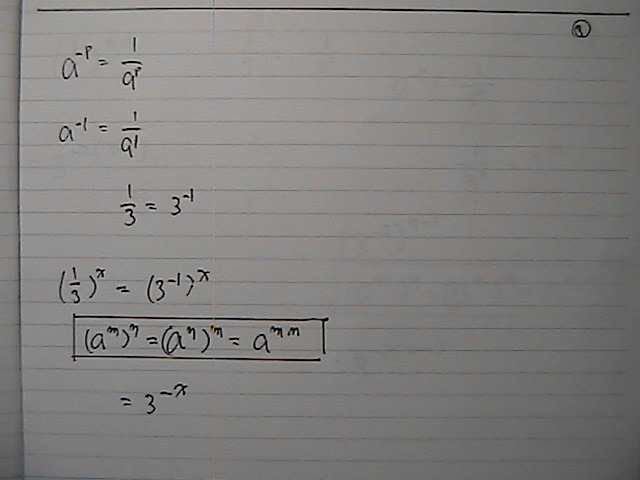 ②
a^-p = 1/a^p
a^-1 = 1/a^1
1/3 = 3^-1
(1/3)^x = (3^-1)^x
(a^m)^n = (a^n)^m = a^mn
= 3^-x